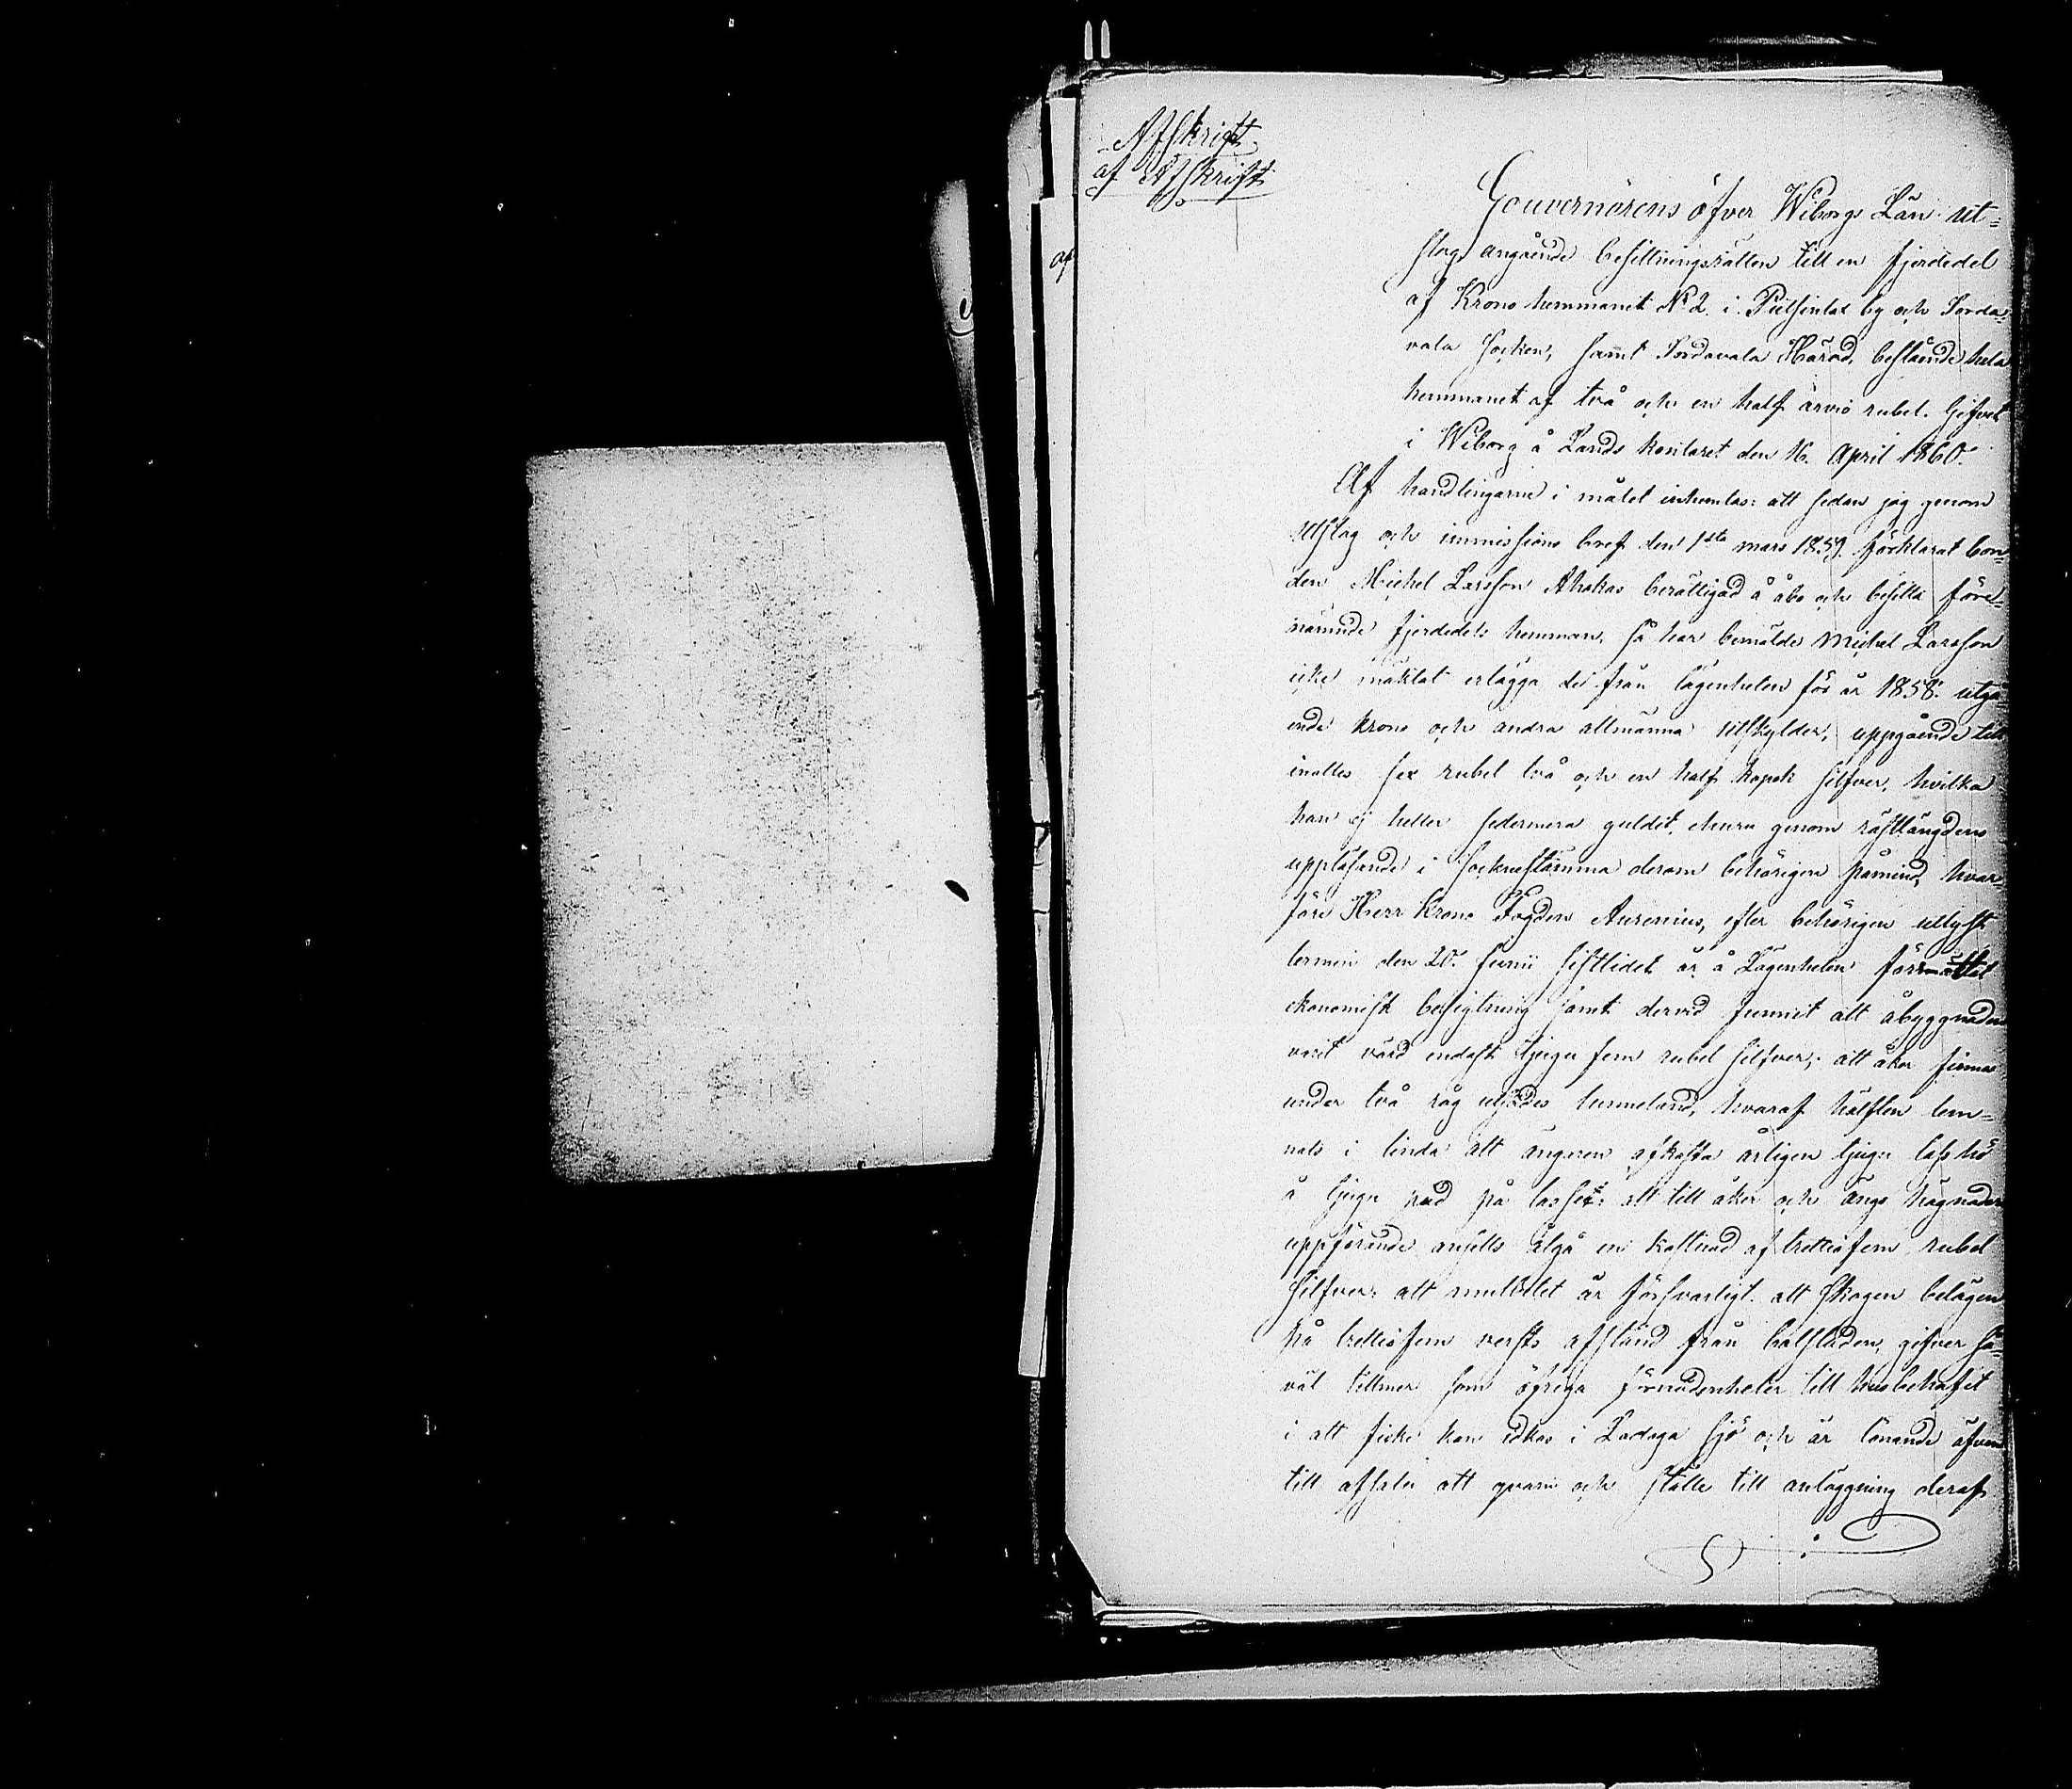 Afskrift
af Afskrift
Gouvernörens öfver Wiborgs Län ut-
slag angående besittningsrätten till en fjerdedel
af Krono hemmanet No 2. i Puitsinlax by och Sorda-
vala socken, samt Sordavala Härad, bestående hela
hemmanet af två och en half ärviö rubel. Gifvet
i Wiborg å Lands kontoret den 16. April 1860.
Af handlingarne i målet inhemtas: att sedan jag genom
utslag och immissions bref den 1sta mars 1859. förklarat bon-
den Michel Larsson Ahokas berättigad å åbo och besitta före-
nämnde fjerdedels hemman, så har bemälde Michel Larsson
icke mäktat erlägga de från lägenheten för år 1858. utgå-
ende krono och andra allmänna utskylder, uppgående till
inalles sex rubel två och en half kopek silfver, hvilka
han ej heller sedermera guldit, ehuru genom restlängdens
uppläsande i sockenstämma derom behörigen påmind, hvar-
före Herr Krono Fogden Aurenius, efter behörigen utlyst
termin den 20. Junii sistlidet år å Lägenheten förrättat
ekonomisk besigtning samt dervid funnit att åbyggnaden
varit värd endast tjugu fem rubel silfver; att åker finnes
under två råg utsädes tunneland, hvaraf hälften lem-
nats i linda att ängarne afkasta årligen tjugu lass hö
à tjugu pud på lasset: att till åker och ängs hägnaders
uppförande ansetts åtgå en kostnad af trettiofem rubel
silfver: att mulbetet är försvarligt. att skogen belägen
på trettiofem versts afstånd från bolstaden, gifver så-
väl timmer som öfriga förnödenheter till husbehofvet
i att fiske kan idkas i Ladoga sjö och är lönande äfven
till afsalu att qvarn och ställe till anläggning deraf